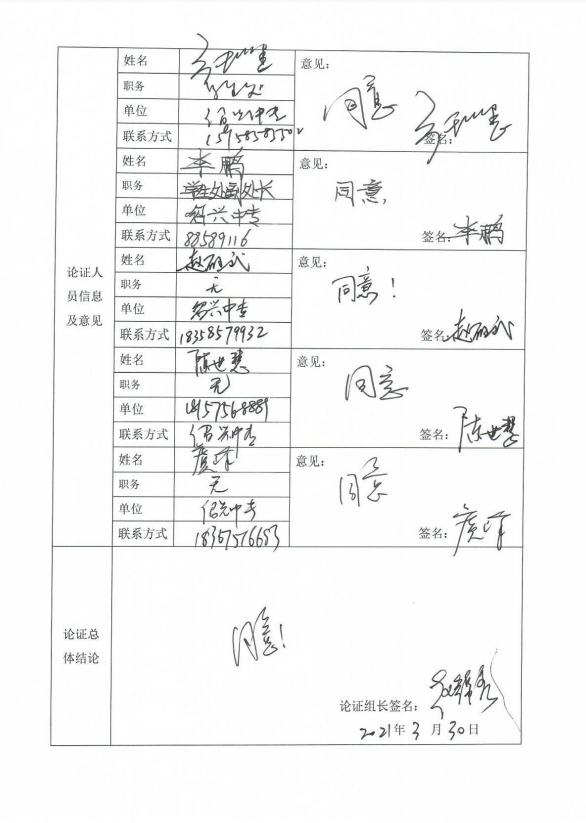 姓名
意见：
职务
同意
单位
联系方式
签名：
姓名 李鹏
意见：
职务 学生处副处长
同意，
单位 绍兴中专
联系方式 88589116
签名：李鹏
论证人
员信息
及意见
姓名
意见：
职务 无
同意！
单位 绍兴中专
联系方式 18358579932
签名：
姓名 陈世慧
意见：
职务 无
同意
单位
联系方式 绍兴中专
签名：陈世慧
姓名
意见：
职务 无
同意
单位 绍兴中专
联系方式 18367576683
签名：
论证总
体结论
同意！
论证组长签名：
2021年3月30日